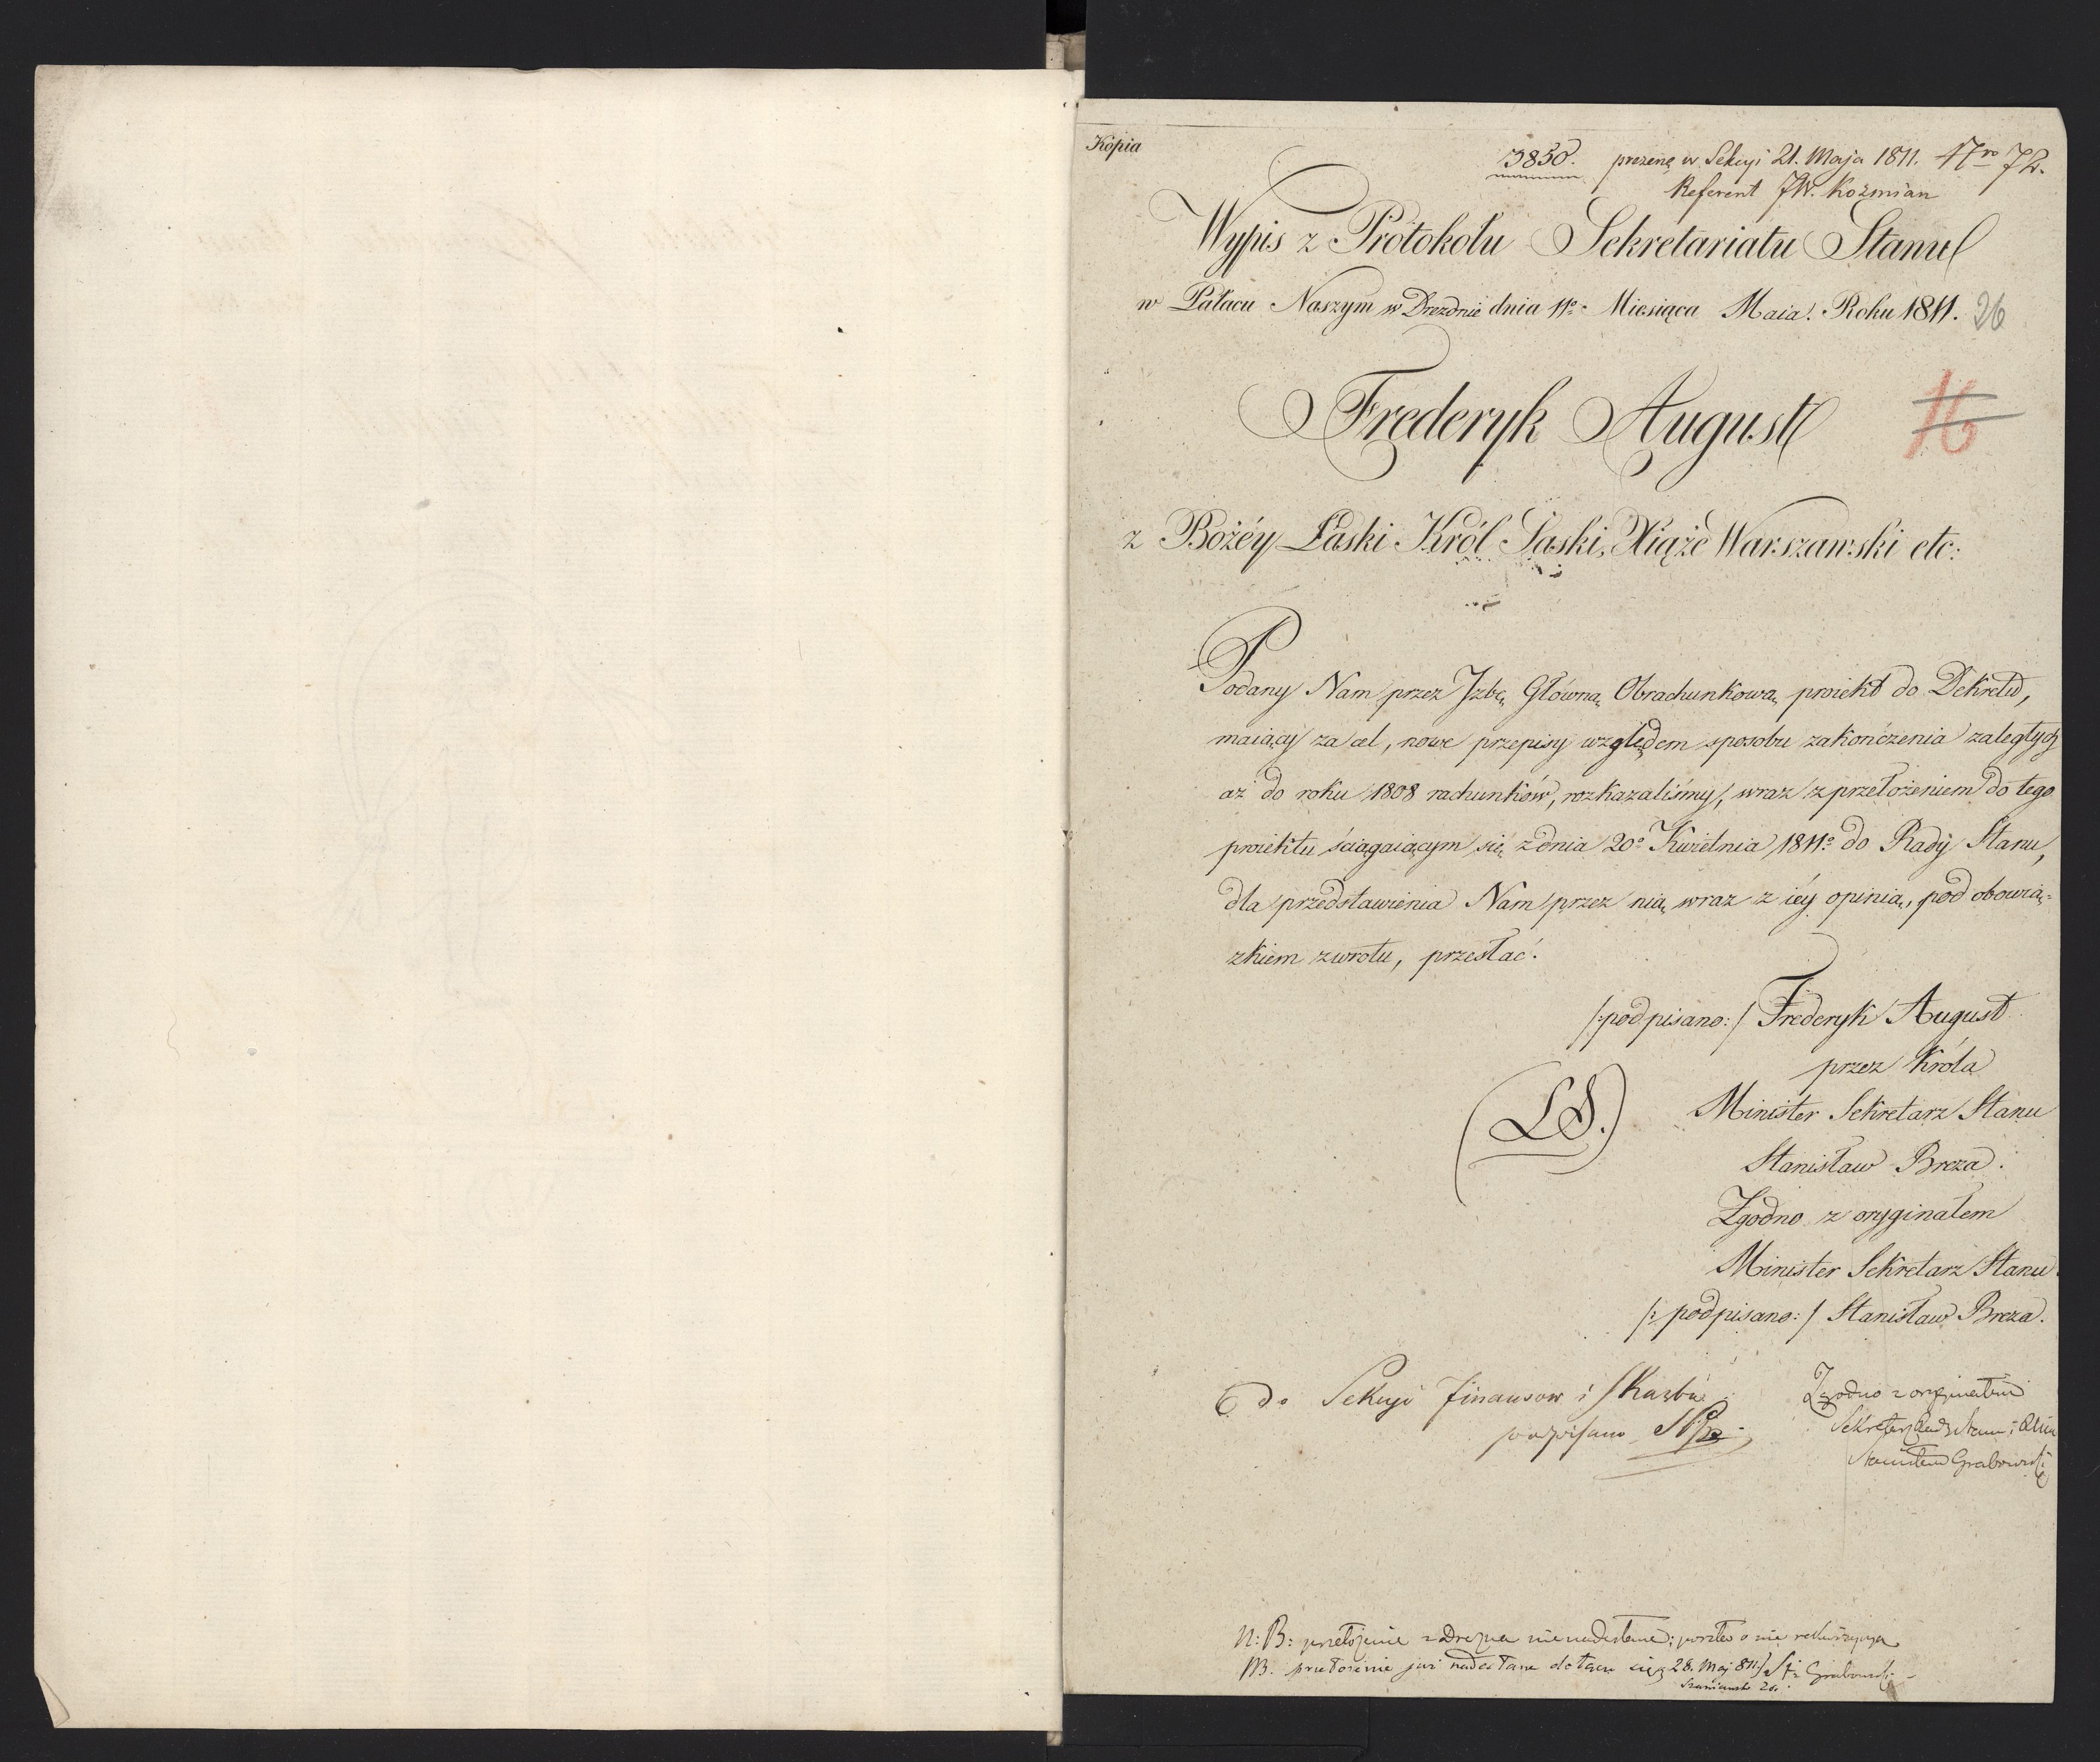 Kópia
3850. prezent. w Sekcyi 21. Maja 1811. Nro 72.
Referent JW. Kozmian
Wypis z Protokołu Sekretariatu Stanu
w Pałacu Naszym w Dreznie dnia 11º Miesiąca Maia. Roku 1811. 26
Frederyk August
16
z Bożéy Łaski Król Saski, Xiąże Warszawski etc:
Podany Nam przez Jzbę Główną Obrachunkową proiekt do Dekretu,
maiący za cel, nowe przepisy względem sposobu zakończenia zaległych
aż do roku 1808 rachunków, rozkazaliśmy, wraz z przełożeniem do tego
proiektu ściągaiącym się z dnia 20º Kwietnia 1811º do Rady Stanu,
dla przedstawienia Nam przez nią wraz z iéy opinią, pod obowią=
zkiem zwrotu, przesłać.
/:podpisano:/ Frederyk August
przez Króla
(LS.)
Minister Sekretarz Stanu
Stanisław Breza.
Zgodno z oryginałem
Minister Sekretarz Stanu.
/:podpisano:/ Stanisław Breza.
do Sekcyi Finansow i Skarbu
podpisano
Zgodno z oryginałem
Sekretarz Rady Stanu i
Stanisław Grabowski
N: B: przełożenie z Drezna nienadesłane; poszła o nie rekwizycya
NB. przełożenie już nadesłane dołącza się 28. Maj 811
Grabowski